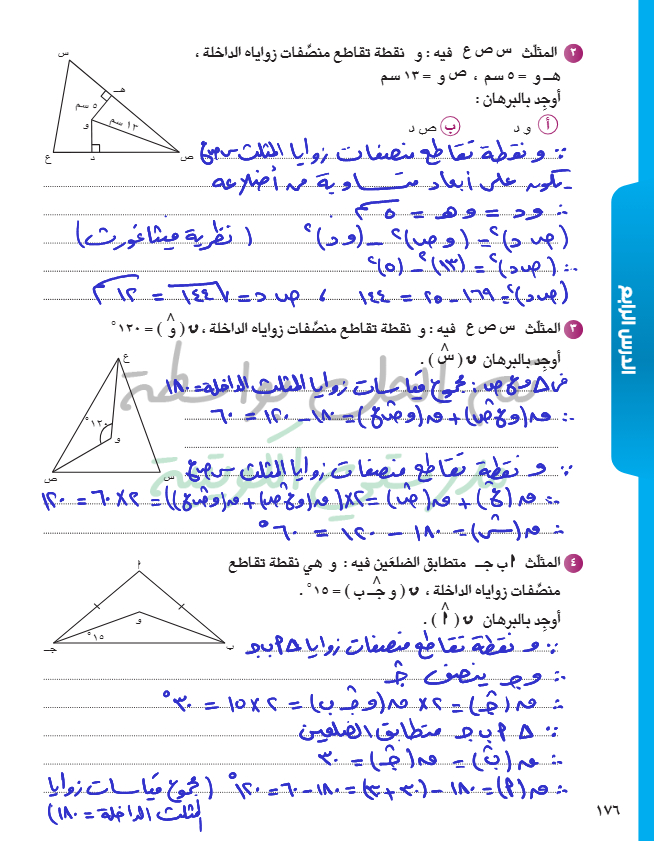 ٢ المثلّث س ص ع فيه : و نقطة تقاطع منصّفات زواياه الداخلة ،
هـ و = ٥ سم ، ص و = ١٣ سم
أوجِد بالبرهان :
أ و د ب ص د
س
هـ
٥ سم
و
١٣ سم
ع
د
ص
∵ و نقطة تقاطع منصفات زوايا المثلث س ص ع
يكون على أبعاد متساوية من أضلاعه
∴ و د = و هـ = ٥ سم
(ص د)² = (و ص)² − (و د)² ( نظرية فيثاغورث )
∴ (ص د)² = (١٣)² − (٥)²
(ص د)² = ١٦٩ − ٢٥ = ١٤٤ ، ص د = √١٤٤ = ١٢ سم
الدرس الرابع
٣ المثلّث س ص ع فيه : و نقطة تقاطع منصّفات زواياه الداخلة ، ن ( و̂ ) = ١٢٠°
أوجِد بالبرهان ن ( س̂ ) .
ع
١٢٠°
و
ص
س
في Δ و ع ص : مجموع قياسات زوايا المثلث الداخلة = ١٨٠
∴ ن(و ع ص) + ن(و ص ع) = ١٨٠ − ١٢٠ = ٦٠
∵ و نقطة تقاطع منصفات زوايا المثلث س ص ع
∴ ن(ع̂) + ن(ص̂) = ٢×(ن(و ع ص) + ن(و ص ع)) = ٢×٦٠ = ١٢٠
∴ ن(س̂) = ١٨٠ − ١٢٠ = ٦٠°
٤ المثلّث أ ب جـ متطابق الضلعَين فيه : و هي نقطة تقاطع
منصّفات زواياه الداخلة ، ن ( و جـ̂ ب ) = ١٥° .
أوجِد بالبرهان ن ( أ̂ ) .
أ
و
١٥°
جـ
ب
∵ و نقطة تقاطع منصفات زوايا Δ أ ب جـ
∴ و جـ ينصف جـ̂
∴ ن(جـ̂) = ٢× ن(و جـ̂ ب) = ٢×١٥ = ٣٠°
∵ Δ أ ب جـ متطابق الضلعين
∴ ن(ب̂) = ن(جـ̂) = ٣٠
∴ ن(أ̂) = ١٨٠ − (٣٠ + ٣٠) = ١٨٠ − ٦٠ = ١٢٠° ( مجموع قياسات زوايا
المثلث الداخلة = ١٨٠ )
١٧٦